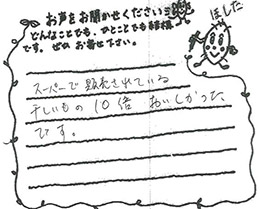 お声をお聞かせください
どんなことでも、ひとことでも結構
です。ぜひ お寄せ下さい。
ほした
スーパーで 販売されている
干しいもの 10倍 おいしかった
です。